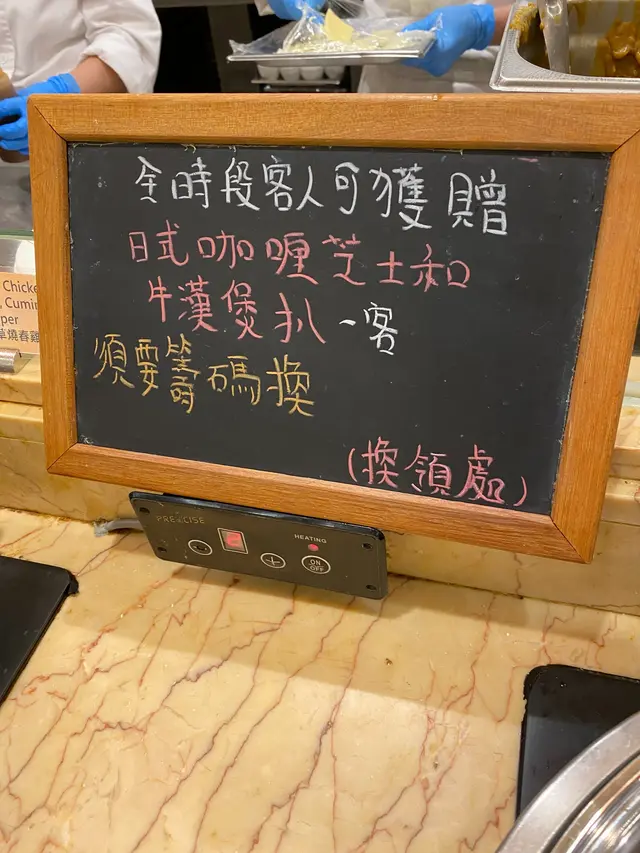 全時段客人可獲贈
日式咖喱芝士和
牛漢煲扒一客
須要籌碼換
(換領處)
Chicke
, Cumin
per
草燒春雞
PRE CISE
HEATING
ON
OFF